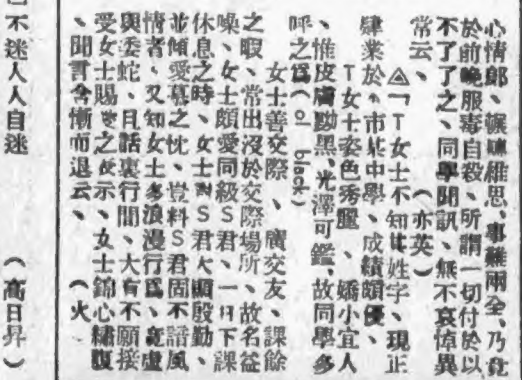 心情郎、輾轉維思、事難兩全、乃竟
於前晚服毒自殺、所謂一切付於以
不了了之、同學聞訊、無不哀悼異
常云、（亦英）
△「T女士不知其姓字、現正
肄業於本市某中學、成績頗優、
T女士姿色秀麗、嬌小宜人
、惟皮膚黝黑、光澤可鑑、故同學多
呼之爲（ol black）
女士善交際、廣交友、課餘
之暇、常出沒於交際場所、故名益
噪、女士頗愛同級S君、一日下課
休息之時、女士對S君大獻殷勤、
並傾愛慕之忱、豈料S君固不諳風
情者、又知女士多浪漫行爲、竟虛
與委蛇、且話裏行間、大有不願接
受女士賜愛之表示、女士錦心繡腹
、聞言含慚而退云、（火
不迷人人自迷（高日昇）